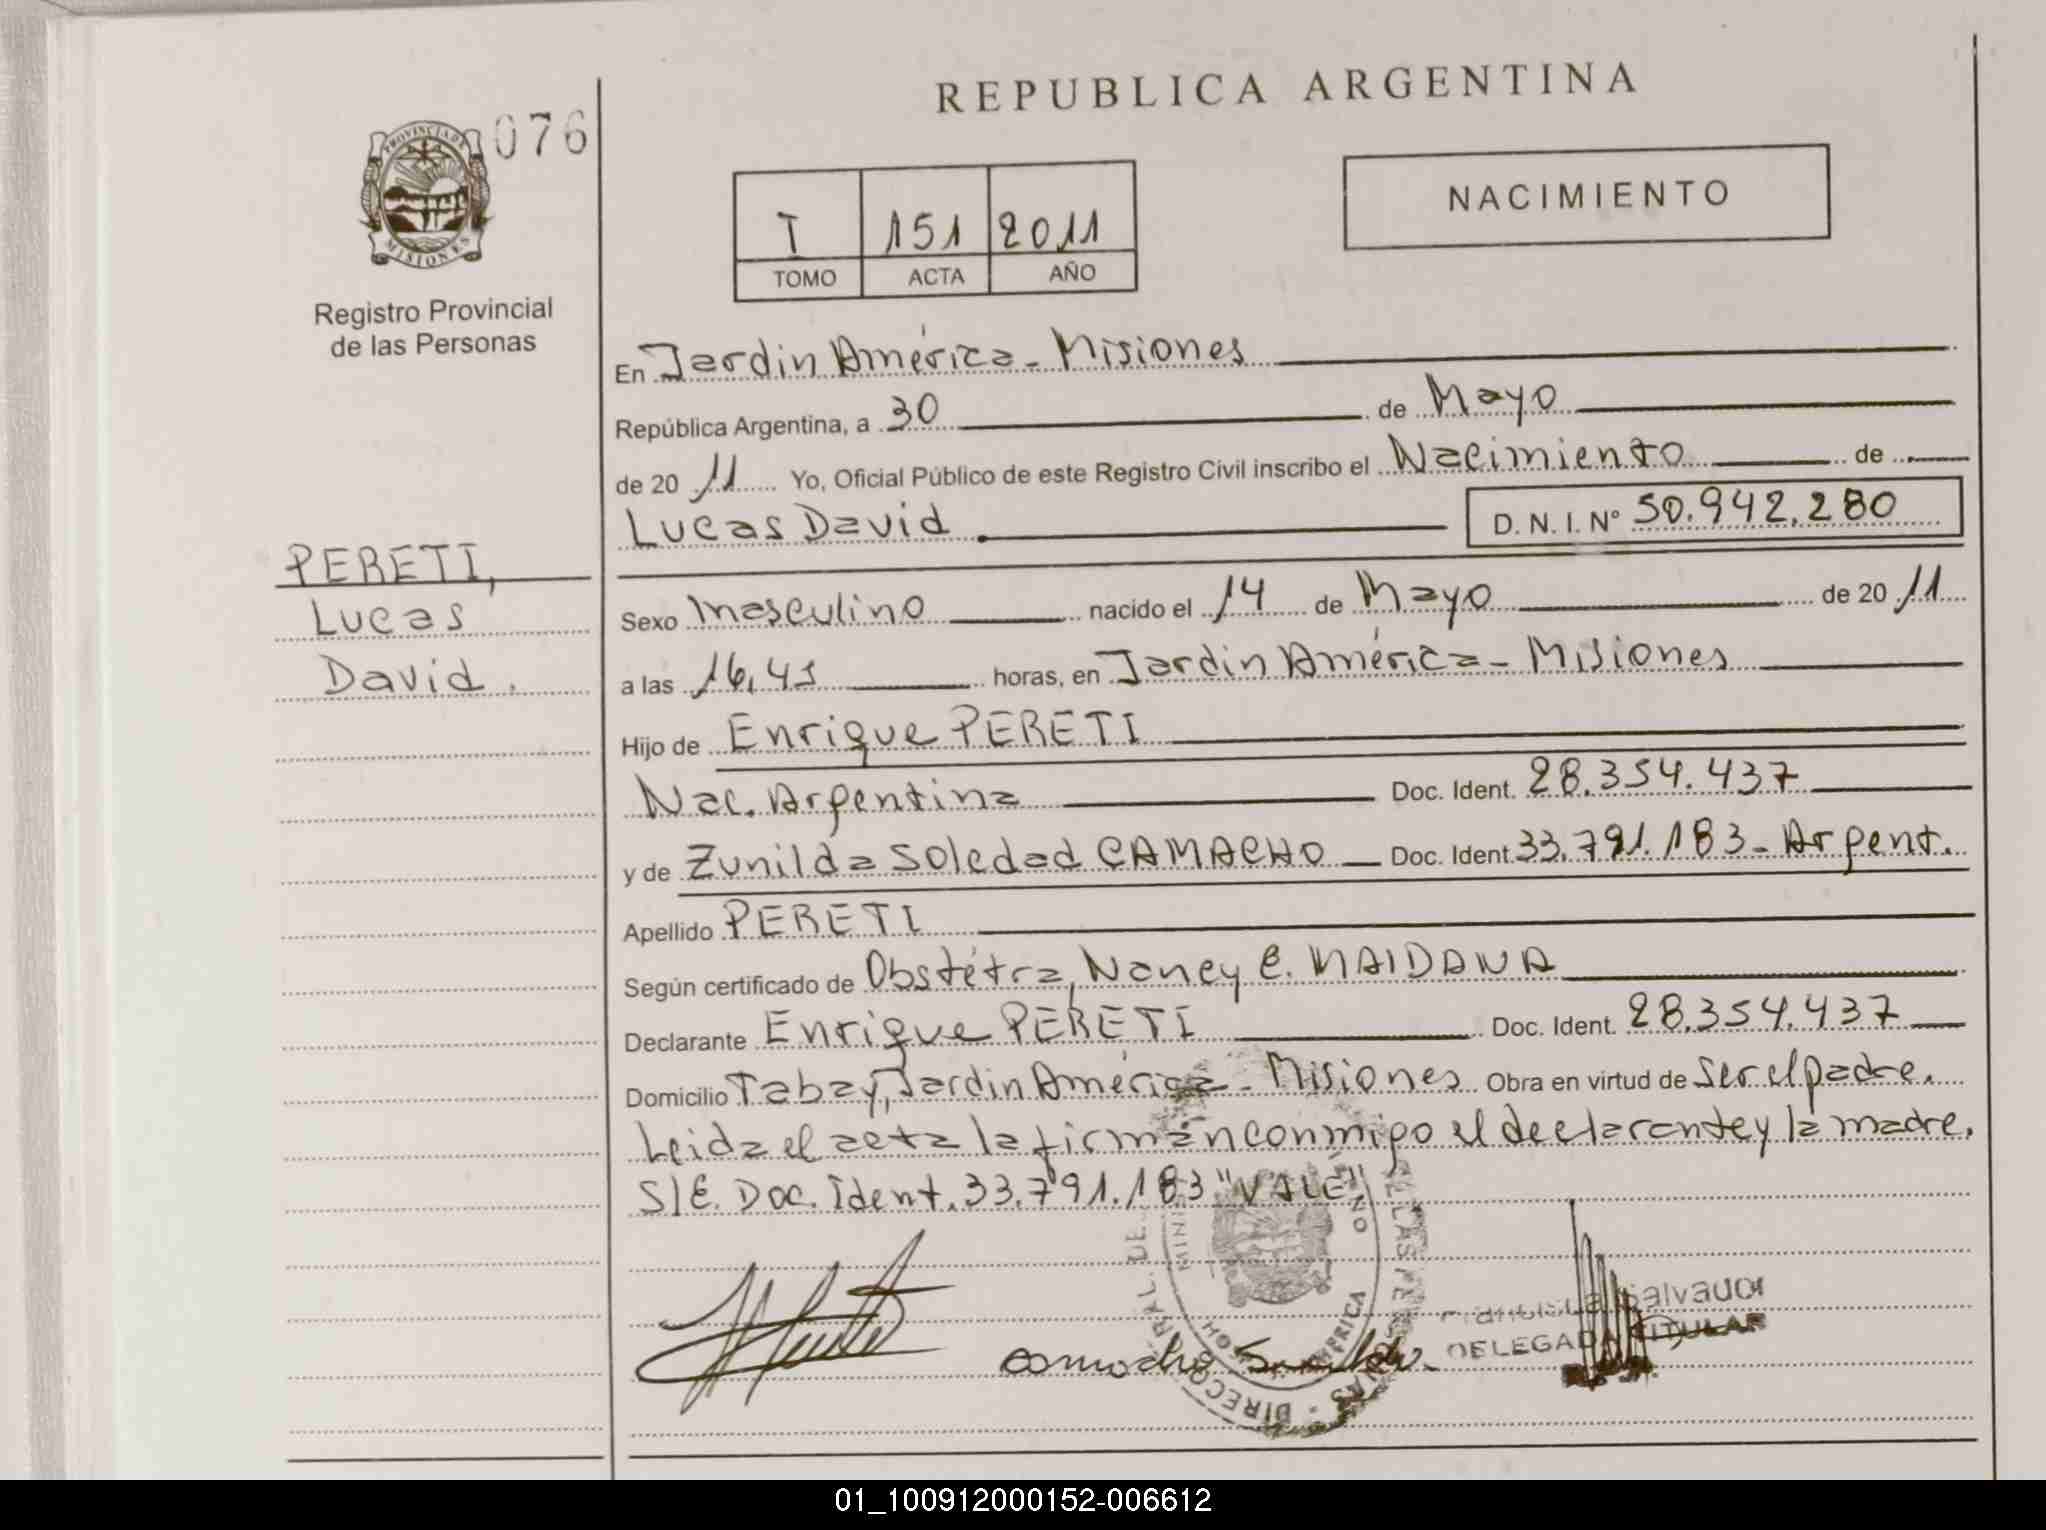 REPUBLICA ARGENTINA
076
PROVINCIA DE
MISIONES
Registro Provincial
de las Personas
NACIMIENTO
I 151 2011
TOMO ACTA AÑO
En Jardín América - Misiones
República Argentina, a 30 de Mayo
de 20 11 Yo, Oficial Público de este Registro Civil inscribo el Nacimiento de
Lucas David D. N. I. Nº 50.942.280
PERETI,
Lucas
David.
Sexo masculino nacido el 14 de Mayo de 20 11
a las 16,41 horas, en Jardín América - Misiones
Hijo de Enrique PERETI
Nac. Argentina Doc. Ident. 28.354.437
y de Zunilda Soledad CAMACHO Doc. Ident. 33.791.183 - Argent.
Apellido PERETI
Según certificado de Obstétra, Nancy E. MAIDANA
Declarante Enrique PERETI Doc. Ident. 28.354.437
Domicilio Tabay, Jardín América - Misiones Obra en virtud de ser el padre.
Leida el acta la firman conmigo el declarante y la madre.
S/E. Doc. Ident. 33.791.183 "VALE"
Salvador
DELEGADA TITULAR
camacho
01_100912000152-006612